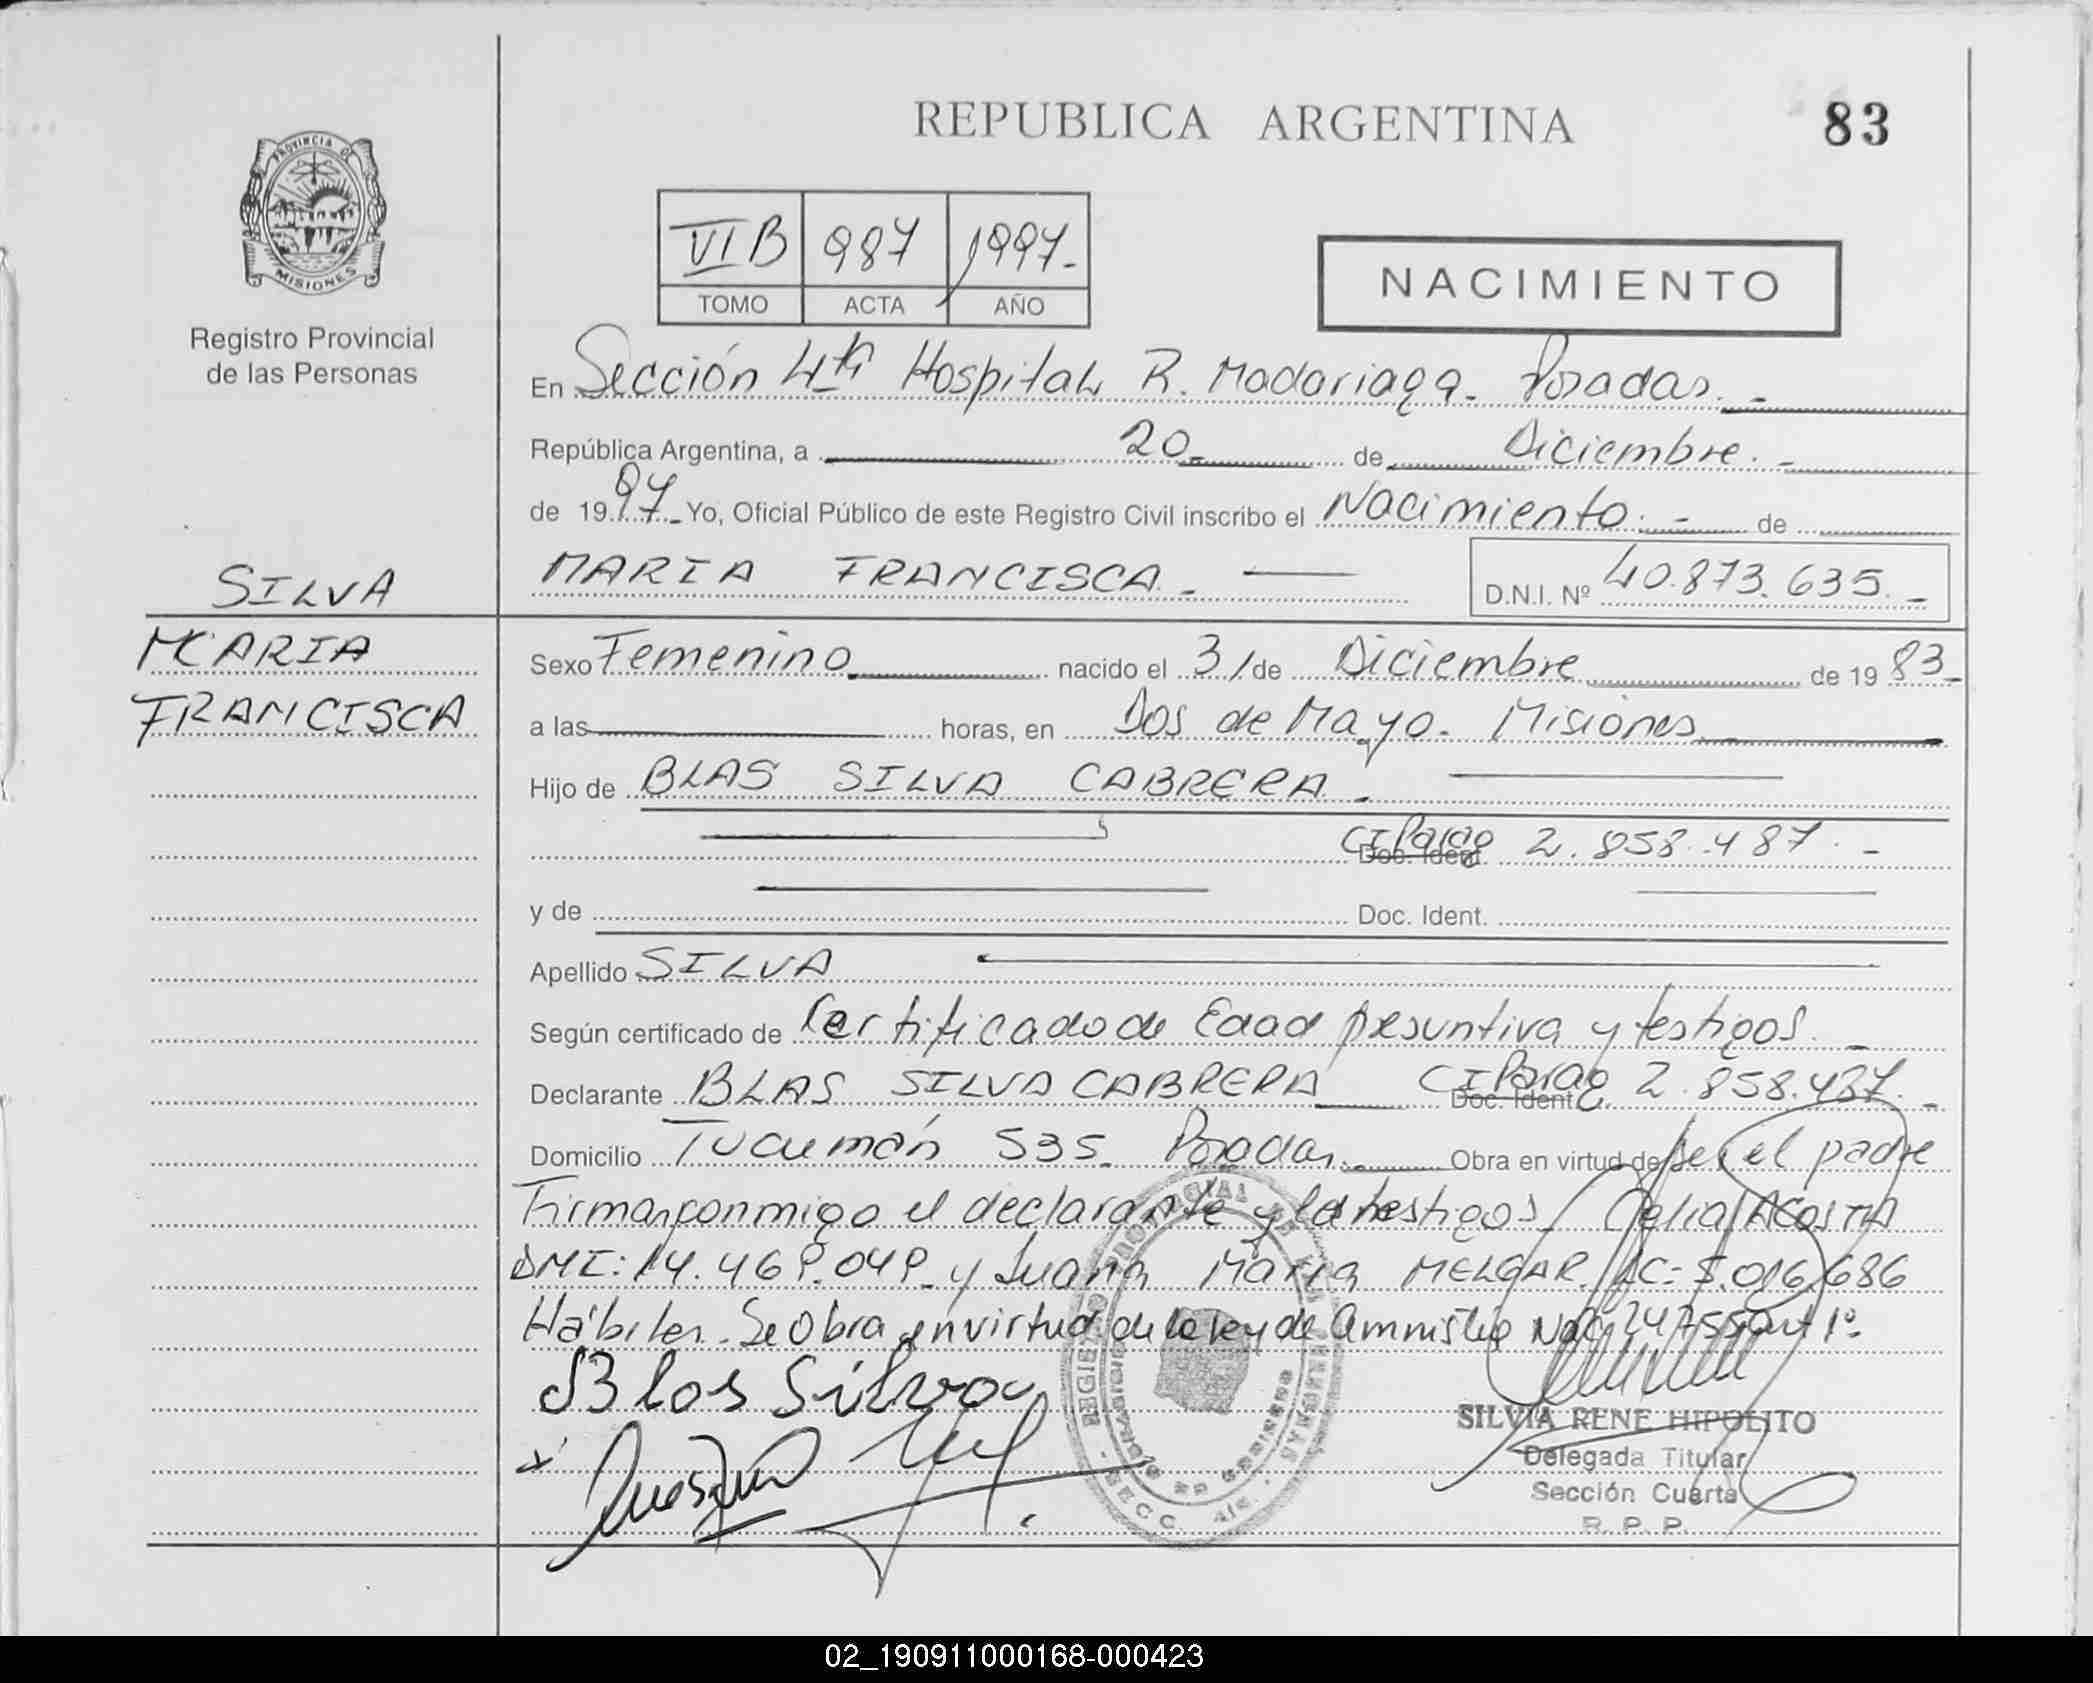 REPUBLICA ARGENTINA
83
PROVINCIA DE
MISIONES
Registro Provincial
de las Personas
VI B 987 1997.-
TOMO ACTA AÑO
NACIMIENTO
En Sección 4ta Hospital R. Madariaga. Posadas. -
República Argentina, a 20 de Diciembre. -
de 1997 Yo, Oficial Público de este Registro Civil inscribo el Nacimiento. - de
SILVA
MARIA
FRANCISCA
MARIA FRANCISCA. -
D.N.I. Nº 40.873.635. -
Sexo Femenino nacido el 3/de Diciembre de 1983-
a las horas, en Dos de Mayo. Misiones
Hijo de BLAS SILVA CABRERA. -
Doc. Ident. CI Parag 2.858.487. -
y de Doc. Ident.
Apellido SILVA
Según certificado de Certificado de Edad presuntiva y testigos. -
Declarante BLAS SILVA CABRERA Doc. Ident. CI Parag 2.858.487. -
Domicilio Tucumán 535. Posadas. Obra en virtud de Ser el padre
Firman conmigo el declarante y testigos Celia ACOSTA
DNI: 14.469.049. y Juana María MELGAR. LC: 5.016.686
Hábiles. Se Obra en virtud de la ley de Amnistía Nac
Blas Silva
SILVIA RENE HIPOLITO
Delegada Titular
Sección Cuarta
R. P. P.
02_190911000168-000423